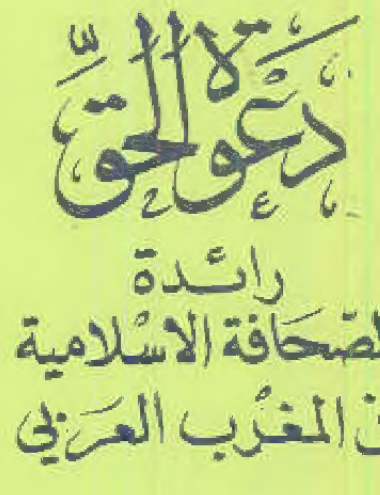 دعوة الحق
رائدة
الصحافة الاسلامية
المغرب العربي